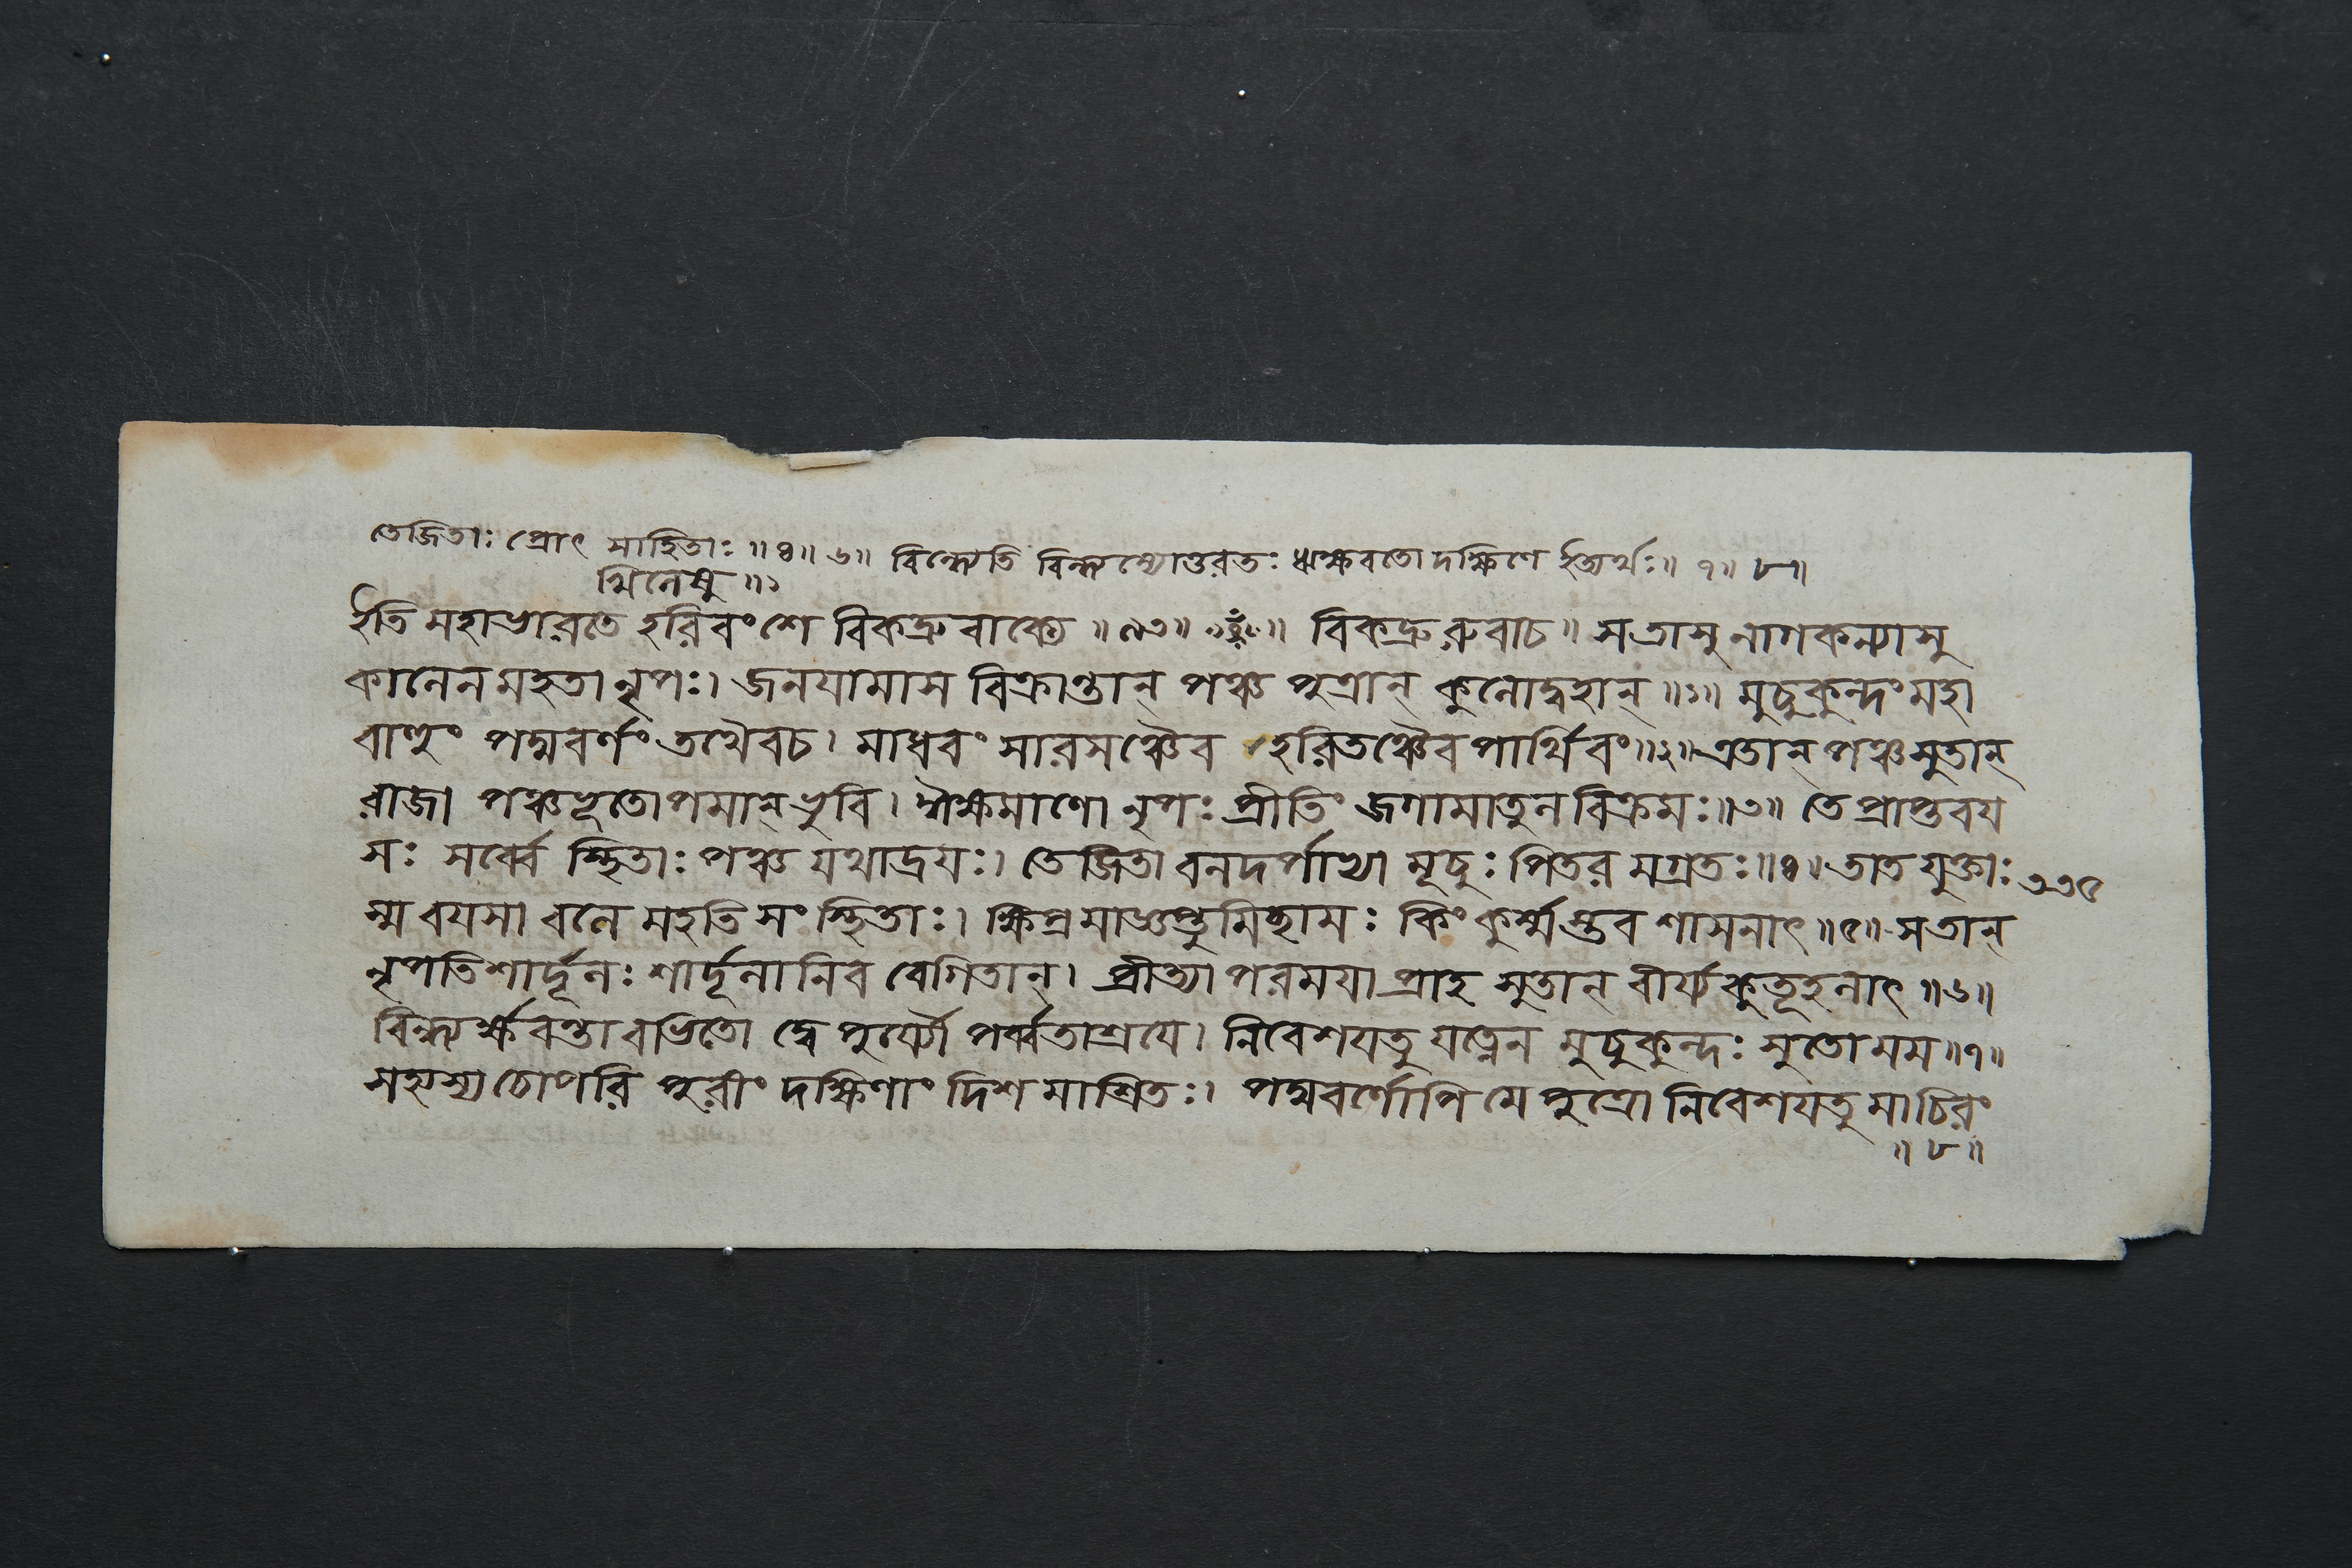 তেজিতাঃ প্রোৎ সাহিতাঃ ॥ ৪ ॥ ৬ ॥ বিন্ধ্যেতি বিন্ধ্যস্যোত্তরতঃ ঋক্ষবতো দক্ষিণে ইত্যর্থঃ ॥ ৭ ॥ ৮ ॥
খিলেষু ॥
ইতি মহাভারতে হরিবংশে বিকদ্রুবাক্যে ॥ ৯৩ ॥ বিকদ্রুরুবাচ ॥ সতাসু নাগকন্যাসু
কালেন মহতা নৃপঃ। জনযামাস বিক্রান্তান্ পঞ্চ পুত্রান্ কুলোদ্বহান্ ॥ ১ ॥ মুচুকুন্দং মহা
বাহুং পদ্মবর্ণং তথৈবচ। মাধবং সারসঞ্চৈব হরিতঞ্চৈব পার্থিবং ॥ ২ ॥ এতান্ পঞ্চসুতান্
রাজা পঞ্চভূতোপমান্ ভুবি। ঈক্ষমাণো নৃপঃ প্রীতিং জগামাতুলবিক্রমঃ ॥ ৩ ॥ তে প্রাপ্তবয
সঃ সর্ব্বে স্থিতাঃ পঞ্চ যথাদ্রয়ঃ। তেজিতা বলদর্পাভ্যা মূচুঃ পিতর মগ্রতঃ ॥ ৪ ॥ তাত যুক্তাঃ ৩৩৫
স্ম বযসা বলে মহতি সংস্থিতাঃ। ক্ষিপ্র মাজ্ঞপ্তুমিচ্ছামঃ কিং কুর্ম্মস্তব শাসনাৎ ॥ ৫ ॥ সতান্
নৃপতিশার্দূলঃ শার্দূলানিব বেগিতান্। প্রীত্যা পরমযা প্রাহ সুতান্ বীর্য্যকুতূহলাৎ ॥ ৬ ॥
বিন্ধ্যর্ক্ষবন্তাবভিতো দ্বে পুর্য্যৌ পর্ব্বতাশ্রযে। নিবেশযতু যত্নেন মুচুকুন্দঃ সুতো মম ॥ ৭ ॥
সহ্যস্য চোপরি পুরীং দক্ষিণাং দিশ মাশ্রিতঃ। পদ্মবর্ণোপি মে পুত্রো নিবেশযতু মাচিরং
॥ ৮ ॥